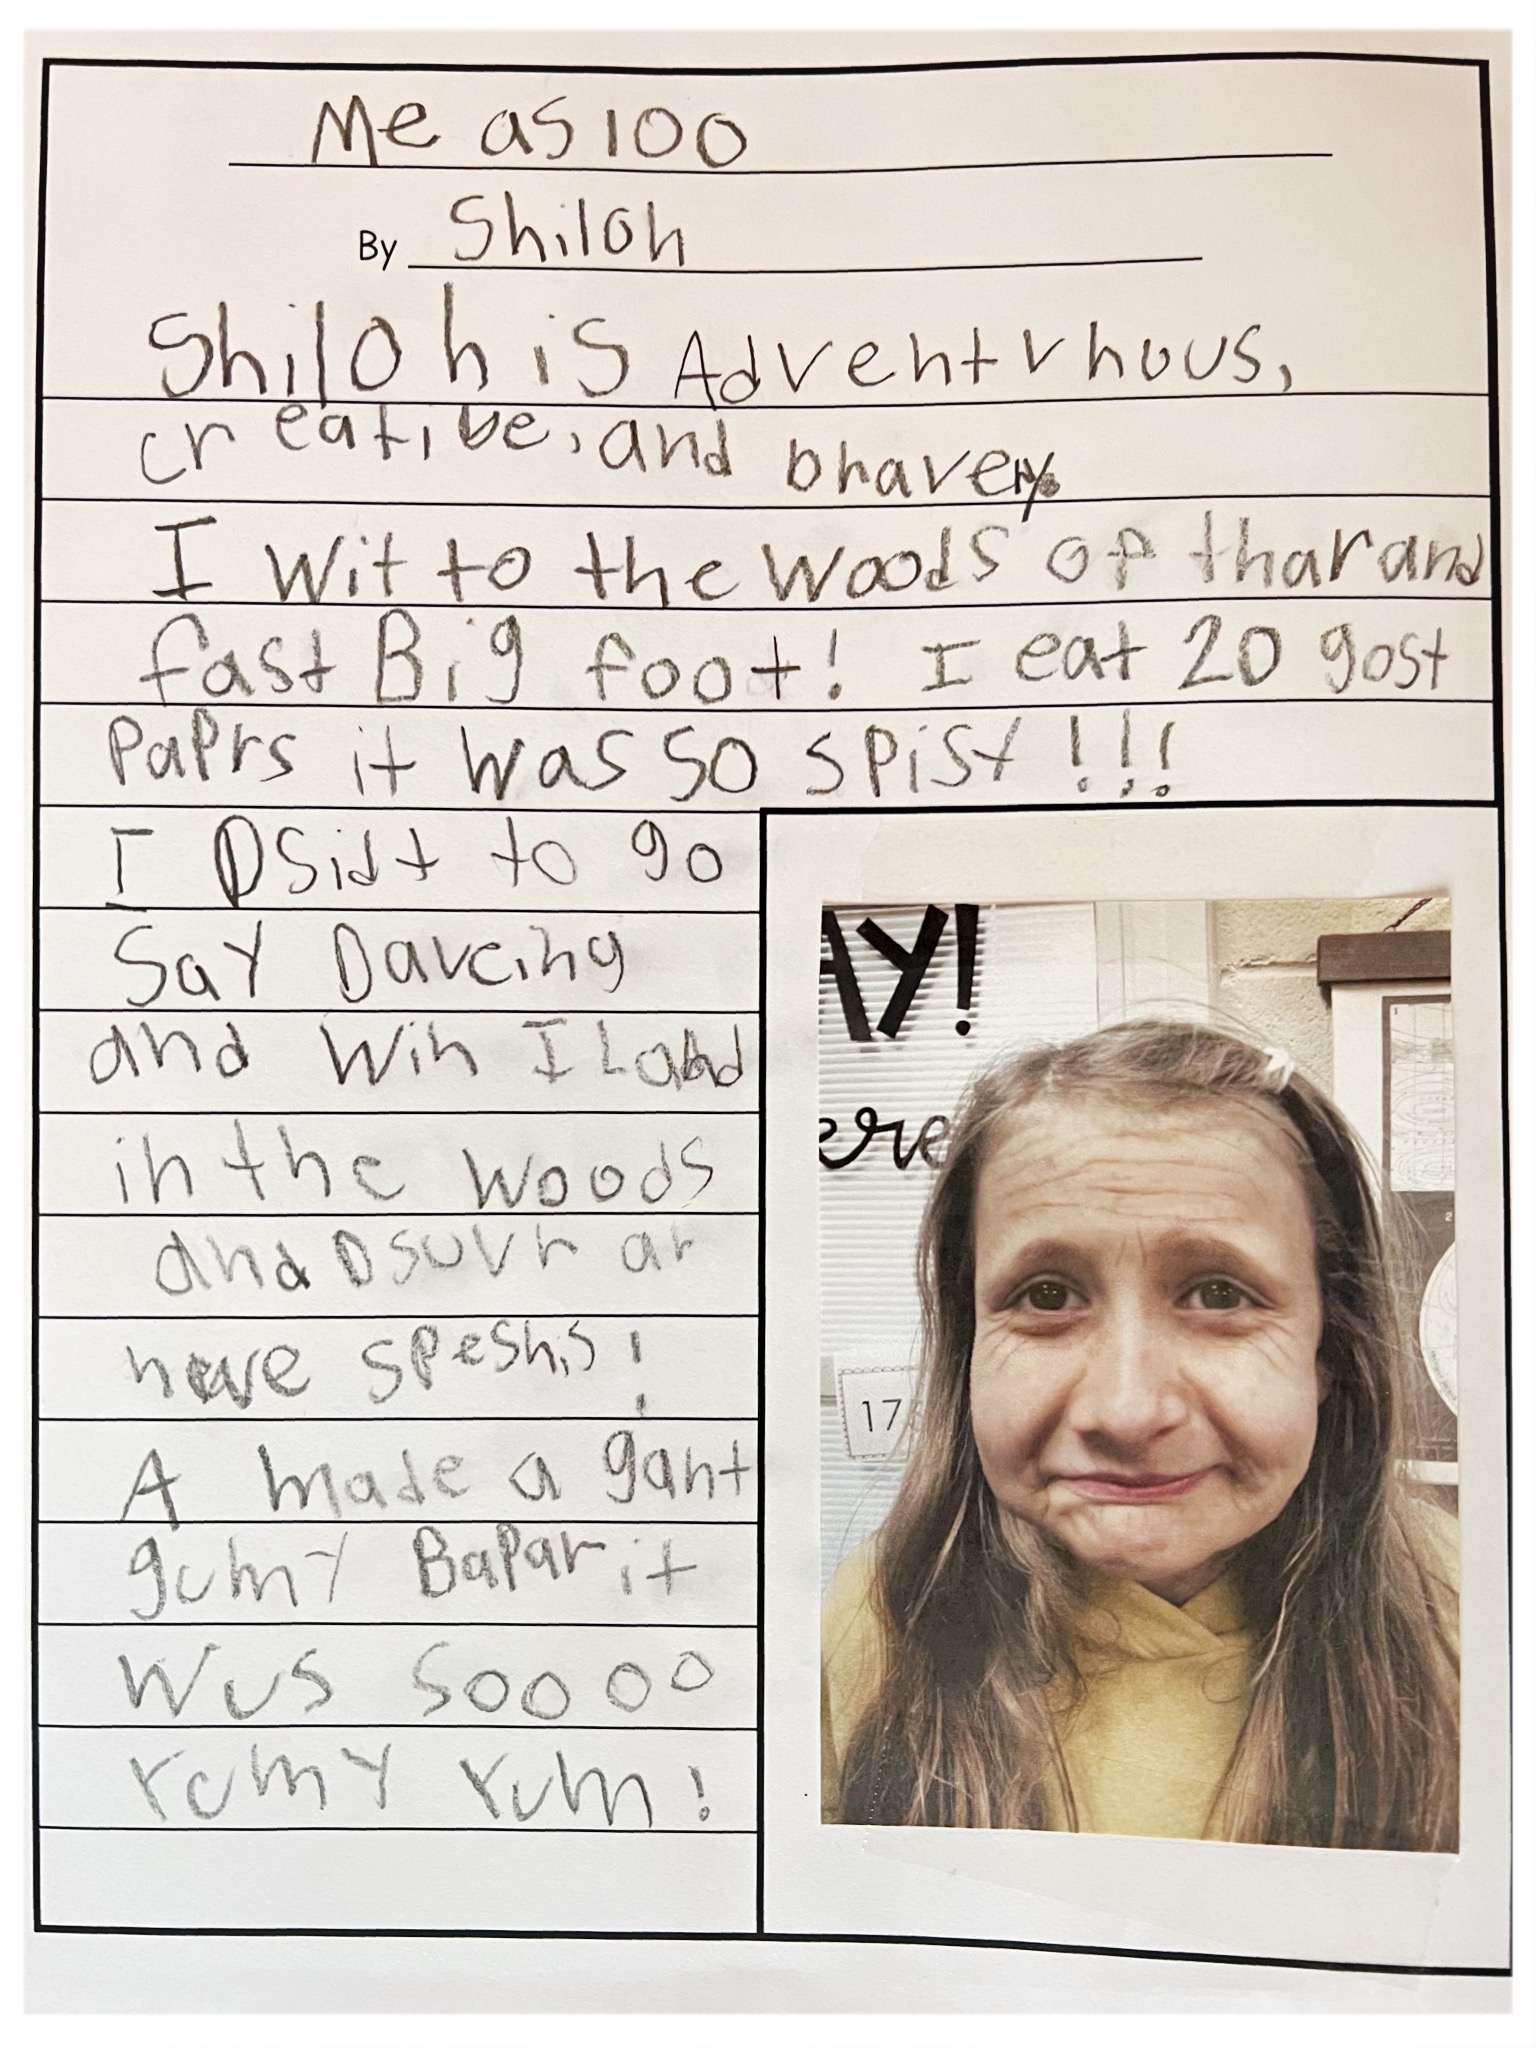 Me as 100
By Shiloh
Shiloh is Adventrhous,
creative, and bhave
I wit to the woods op thar and
fast Big foot! I eat 20 gost
paprs it was so spisy!!!
I Dsidt to go
Say Daveing
and win I Land
in the woods
and Dsuvr ar
neve speshis!
A made a gant
gumy Bapar it
wus soooo
yumy yum!
AY!
ere
17